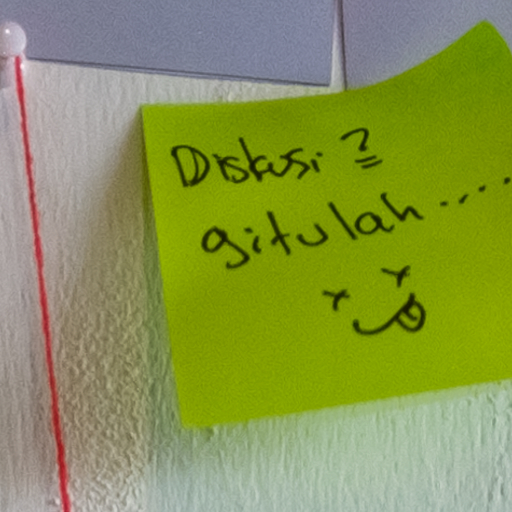 Diskusi ?
gitulah.....